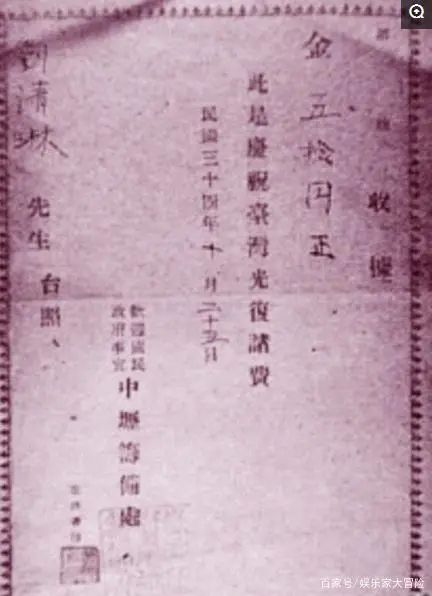 收據
金五拾円正
此是慶祝臺灣光復諸費
民國三十四年十月二十五日
歡迎國民
政府事宜
中壢籌備處
先生台照
百家号/娱乐家大冒险